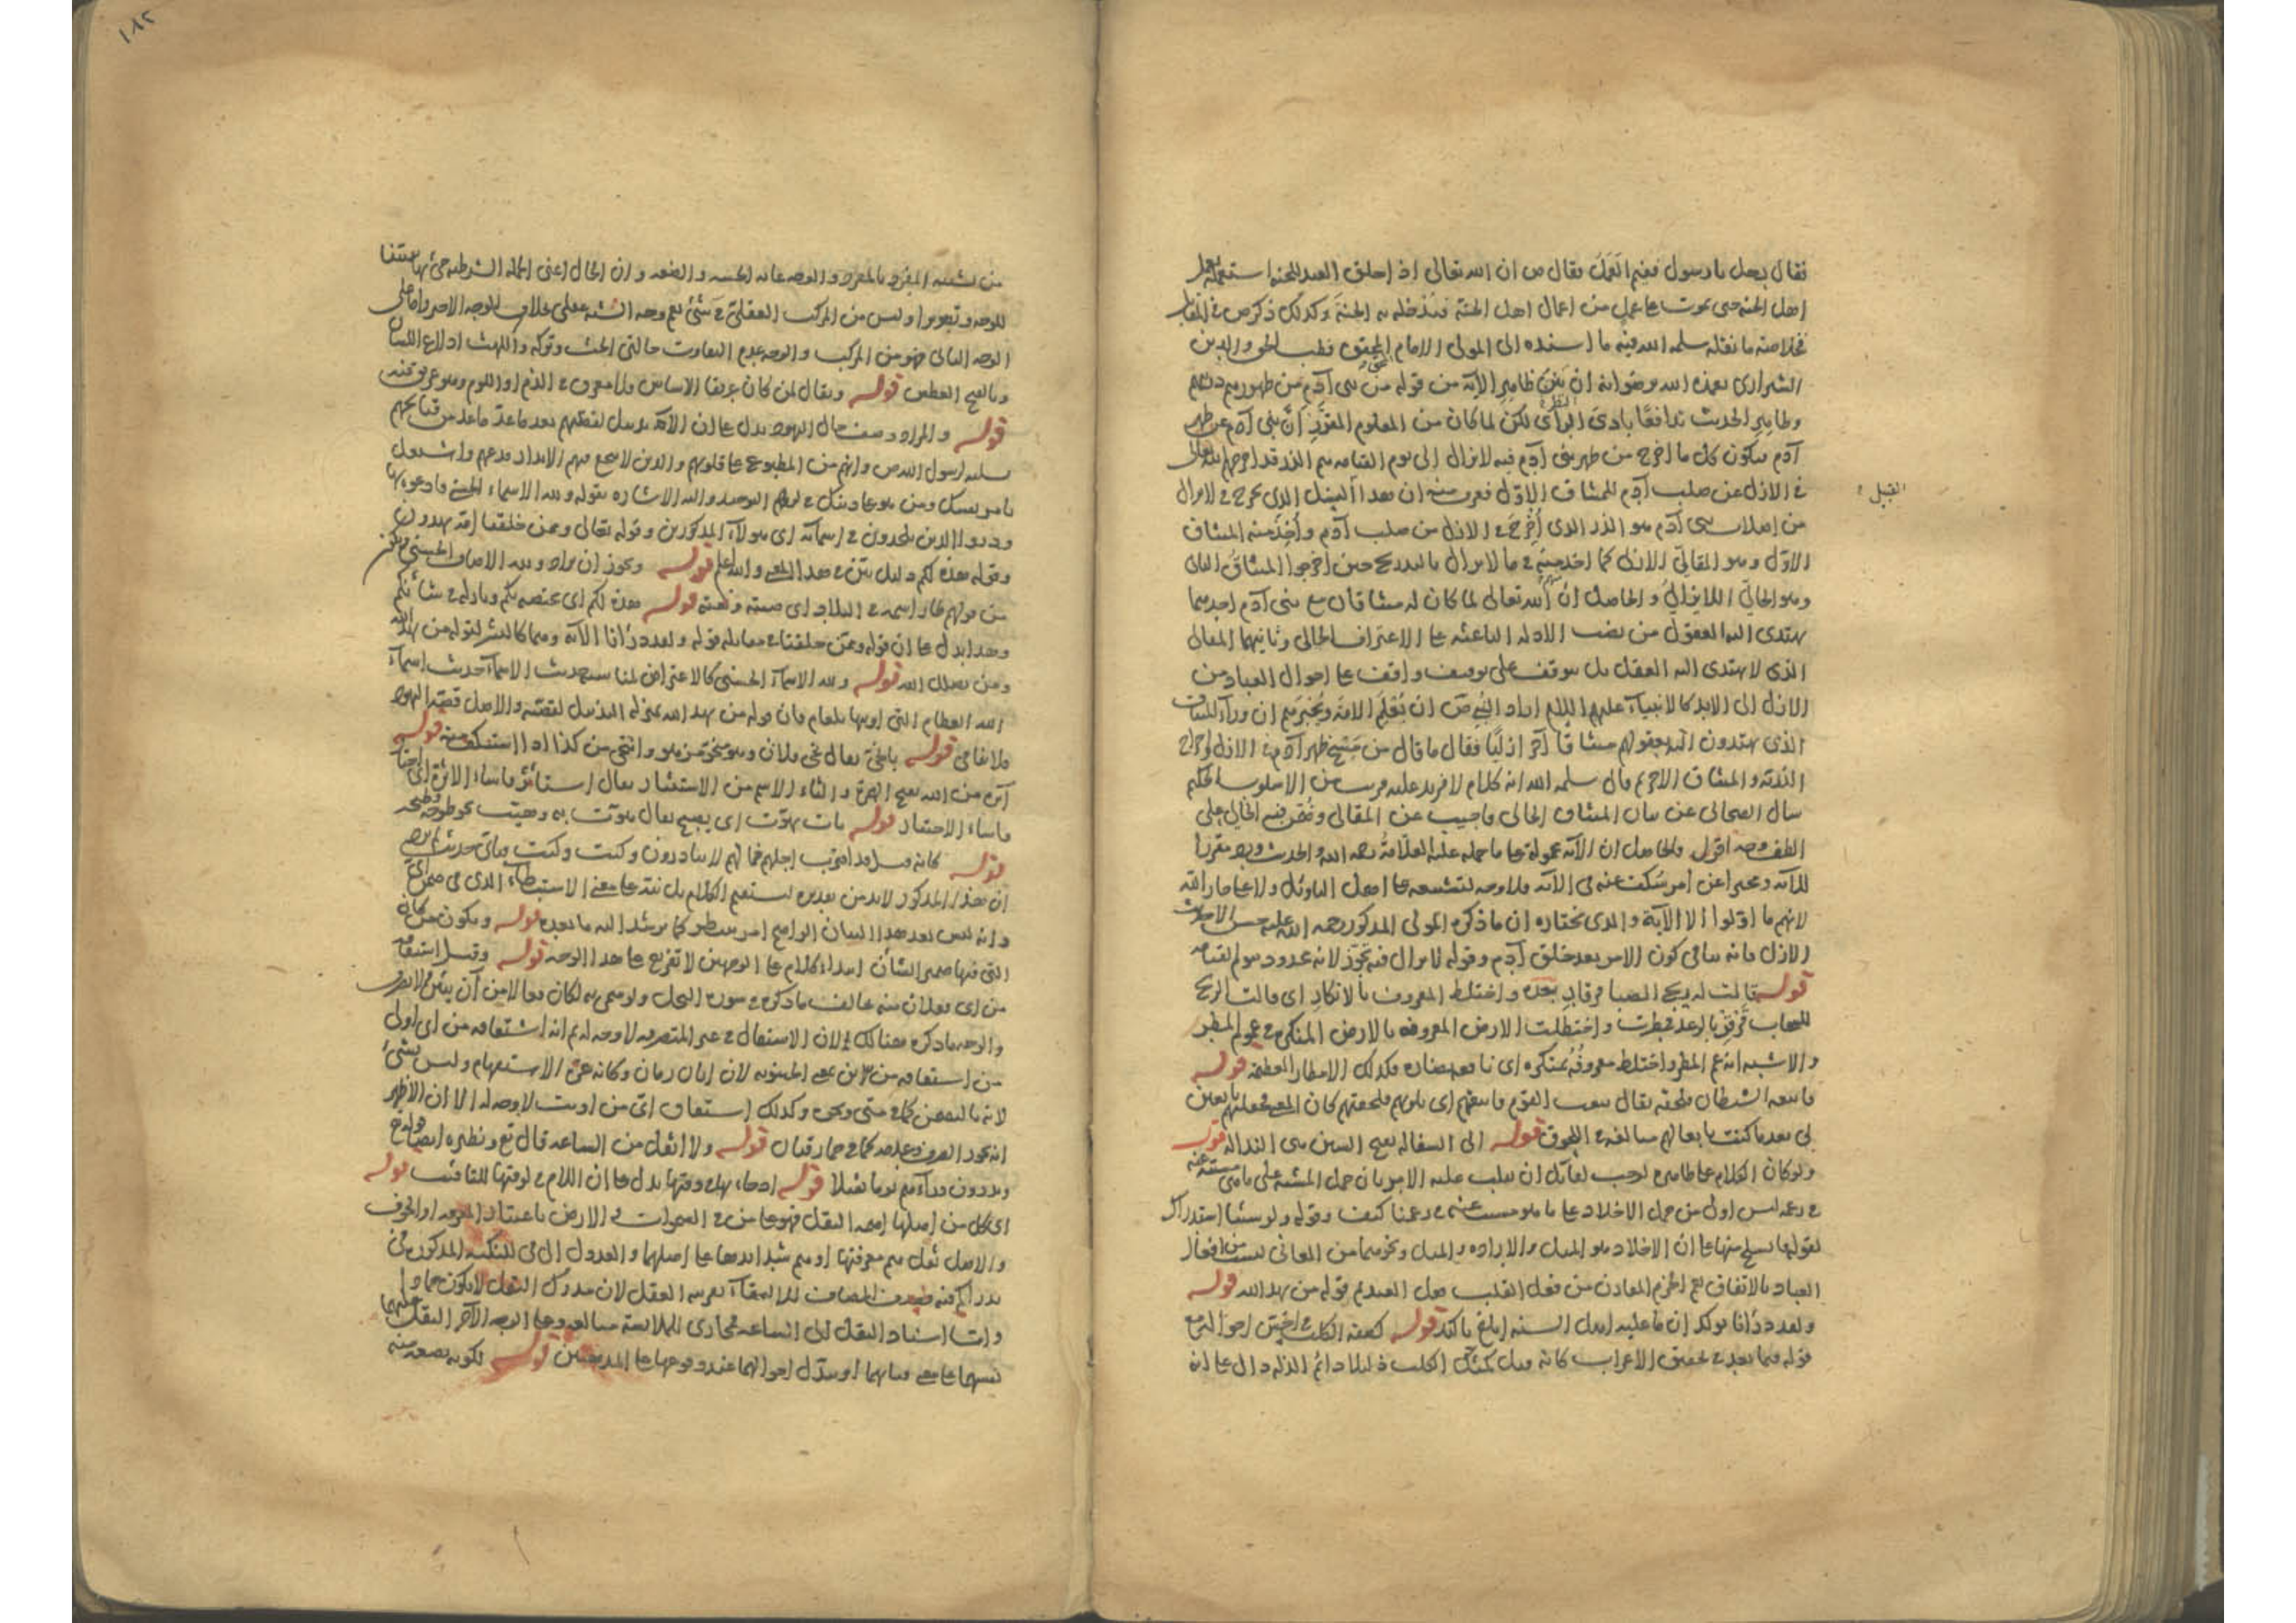 فقال رجل يا رسول ففيم العمل فقال ص ان الله تعالى اذا خلق العبد للجنة استعمله بعمل
اهل الجنة حتى يموت على عمل من اعمال اهل الجنة فيدخله به الجنة وكذلك ذكر ص في
فخلاصة ما نقله سلمه الله فيه ما اسنده الى المولى الامام المحقق قطب الحق والدين
الشيرازي تغمده الله برضوانه ان بين ظاهر الآية من قوله من بني آدم من ظهورهم ذريتهم
وظاهر الحديث تدافعا بادي الرأي لكن لما كان من المعلوم ان بني آدم من ظهر
آدم فيكون كل ما اخرج من ظهر بني آدم فيما لا يزال الى يوم القيامة هم الذر قد اخرجهم الله تعالى
في الازل عن صلب آدم للميثاق الاول فعرف منه ان هذا النسل الذي يخرج في لا يزال
القبل
من اصلاب بني آدم هو الذر الذي اخرج في الازل من صلب آدم واخذ منه الميثاق
الاول وهو المقالي الازلي كما اخذ منه في ما لا يزال بالتدريج حين اخرجوا الميثاق الثاني
وهو الحالي اللايزالي والحاصل ان الله تعالى لما كان له ميثاقان مع بني آدم احدهما
يهتدي اليه العقول من نصب الادلة الباعثة على الاعتراف الحالي وثانيهما المقالي
الذي لا يهتدي اليه العقل بل يتوقف على توقيف واقف على احوال العباد من
الازل الى الابد كالانبياء عليهم السلام اراد النبي ص ان يعلم الامة ويخبرهم ان وراء الميثاق
الذي يهتدون اليه بعقولهم ميثاقا آخر ازليا فقال ما قال من مسح ظهر آدم في الازل واخراج
الذرية والميثاق الآخر ثم قال سلمه الله انه كلام لا مزيد عليه قريب من الاسلوب الحكيم
سأل الصحابي عن بيان الميثاق الحالي فاجيب عن المقالي وضمن فيه الحالي على
الطف وجه اقول والحاصل ان الآية محمولة على ما حمله عليه العلامة رحمه الله والحديث ورد مقررا
للآية ومخبرا عن امر سكت عنه في الآية فلا وجه لتشنيعه على اهل التأويل ولا على جار الله
لانهم ما اولوا الا الآية والذي نختاره ان ما ذكره المولى المذكور رحمه الله عليه حسن الا حديث
الازل فانه ينافي كون الامر بعد خلق آدم وقوله لا يزال فيه تجوز لانه محدود بيوم القيامة
قوله قالت له ريح الصبا قرقار بعده واختلط المعروف بالانكار اي قالت الريح
للسحاب قرقر بالرعد فمطرت واختطلت الارض المعروفة بالارض المنكرة في عموم المطر
والاشبه انه عم المطر واختلط معروفه بمنكره اي نافعه بضاره وكذلك الامطار العظيمة قوله
فاتبعه الشيطان فلحقه يقال تبعت القوم فاتبعتهم اي تلوتهم فلحقتهم كان المعنى فجعلتهم تابعين
لي بعدما كنت تابعا لهم مبالغة في اللحوق قوله الى السفالة بفتح السين هي النذالة قوله
ولو كان الكلام على ظاهره لوجب لقائل ان يقلب عليه الامر بان حمل المشية على ما هي مسببة عنه
في زعمه ليس اولى من حمل الاخلاد على ما هو مسبب عنه في زعمنا كيف وقوله ولو شئنا استدراك
لقوله فانسلخ منها على ان الاخلاد هو الميل والارادة والميل ونحوهما من المعاني ليست من افعال
العباد بالاتفاق نعم الجزم المقارن من فعل القلب فعل العبد ثم قوله من يهد الله قوله
ولقد ذرأنا يؤكد ان ما عليه اهل السنة ابلغ تأكيد قوله كصفة الكلب في اخس احواله مع
قوله فيما بعد في تحقيق الاعراب كانه قيل كمثل الكلب ذليلا دائم الذلة دال على انه
من تشبيه المفرد بالمفرد والوجه غاية الخسة والضعة وان الحال اعني الجملة الشرطية جيء بها
للوجه وتصويرا وليس من المركب العقلي في شيء نعم وجه الشبه عقلي بخلاف الوجه الآخر واما على
الوجه الثاني فهو من المركب والوجه عدم التفاوت حالتي الحث وتركه واللهث ادلاع اللسان
وبالفتح العطش قوله ويقال لمن كان عريقا الاساس فلان معرق في الذم او اللوم وهو عريق فيه
قوله والمراد وصف حال اليهود يدل على ان الآية تذييل لقصتهم بعد ما عد ما عد من قبائحهم
تسلية لرسول الله ص وانهم من المطبوع على قلوبهم والذين لا ينجع فيهم الانذار فدعهم واشتغل
بامر نفسك ومن هو على دينك في لزوم التوحيد واليه الاشارة بقوله ولله الاسماء الحسنى فادعوه بها
وذروا الذين يلحدون في اسمائه اي هؤلاء المذكورين وقوله تعالى وممن خلقنا امة يهدون
وقوله هذه لكم دليل بين في هذا المعنى والله اعلم قوله ويجوز ان يراد ولله الاوصاف الحسنى فيكون
من قولهم طار اسمه في البلاد اي صيته ونعته قوله هذه لكم اي مختصة بكم ونازلة في شأنكم
وهذا يدل على ان قوله وممن خلقنا في مقابلة قوله ولقد ذرأنا الآية وهما كالنشر لقوله من يهد الله
ومن يضلل الله قوله ولله الاسماء الحسنى كالاعتراض لمناسبة حديث الاسماء حديث اسماء
الله العظام التي اوتيها بلعام فان قوله من يهد الله بمنزلة التذييل لقصته والاصل قصة اليهود
فلا تغافل قوله بانخى يقال نخي فلان وهو منخو مزهو وانتخى من كذا اذا استنكف منه قوله
اثرة من الله بفتح الهمزة والثاء الاسم من الاستئثار يقال استأثر فاساء الاثرة اي اختار
فاساء الاختيار قوله بات يهوت اي يصيح يقال هوت به وهيت
قوله كانه قيل قد اقترب اجلهم فما لهم لا يبادرون وكيت وكيت فبأي حديث
ان هذا المذكور لابد من تقديره ليستقيم الكلام بل نبه على معنى الاستبطاء الذي في ضمن اي
وانه ليس بعد هذا البيان الواضح امر ينتظر كما يرشد اليه ما بعده قوله ويكون من كان
التي فيها ضمير الشأن ابتداء كلام على الوجهين لا تفريع على هذا الوجه قوله وقيل اشتقاقه
من اي فعلان منه يخالف ما ذكره في سورة النمل ولو سمي به لكان فعالا من آن يئين ولا يصرف
والوجه ما ذكره هنالك لان الاشتقاق في غير المتصرفة لا وجه له ثم انه اشتقاقه من اي اولى
من اشتقاقه من اين بمعنى الحينونة لان ايان زمان وكانه غره الاستفهام وليس بشيء
لانه بالتضمن كما في متى ونحوه وكذلك اشتقاق اي من اويت لا وجه له الا ان الاظهر
انه يجوز الصرف وعدمه كما في حمار قبان قوله ولا اثقل من الساعة قال تع ونظيره ايضا قوله تع
ويذرون وراءهم يوما ثقيلا قوله في وقتها يدل على ان اللام في لوقتها للتأقيت قوله
اي كل من اهلها اهمه الثقل فهو على من في السموات والارض باعتبار المعرفة او الخوف
والاصل ثقل هم معرفتها او هم شدائدها على اهلها والعدول الى في للنكتة المذكورة في
واما اسناد الثقل الى الساعة فمجازي للملابسة مبالغة وعلى الوجه الآخر الثقل عليهما